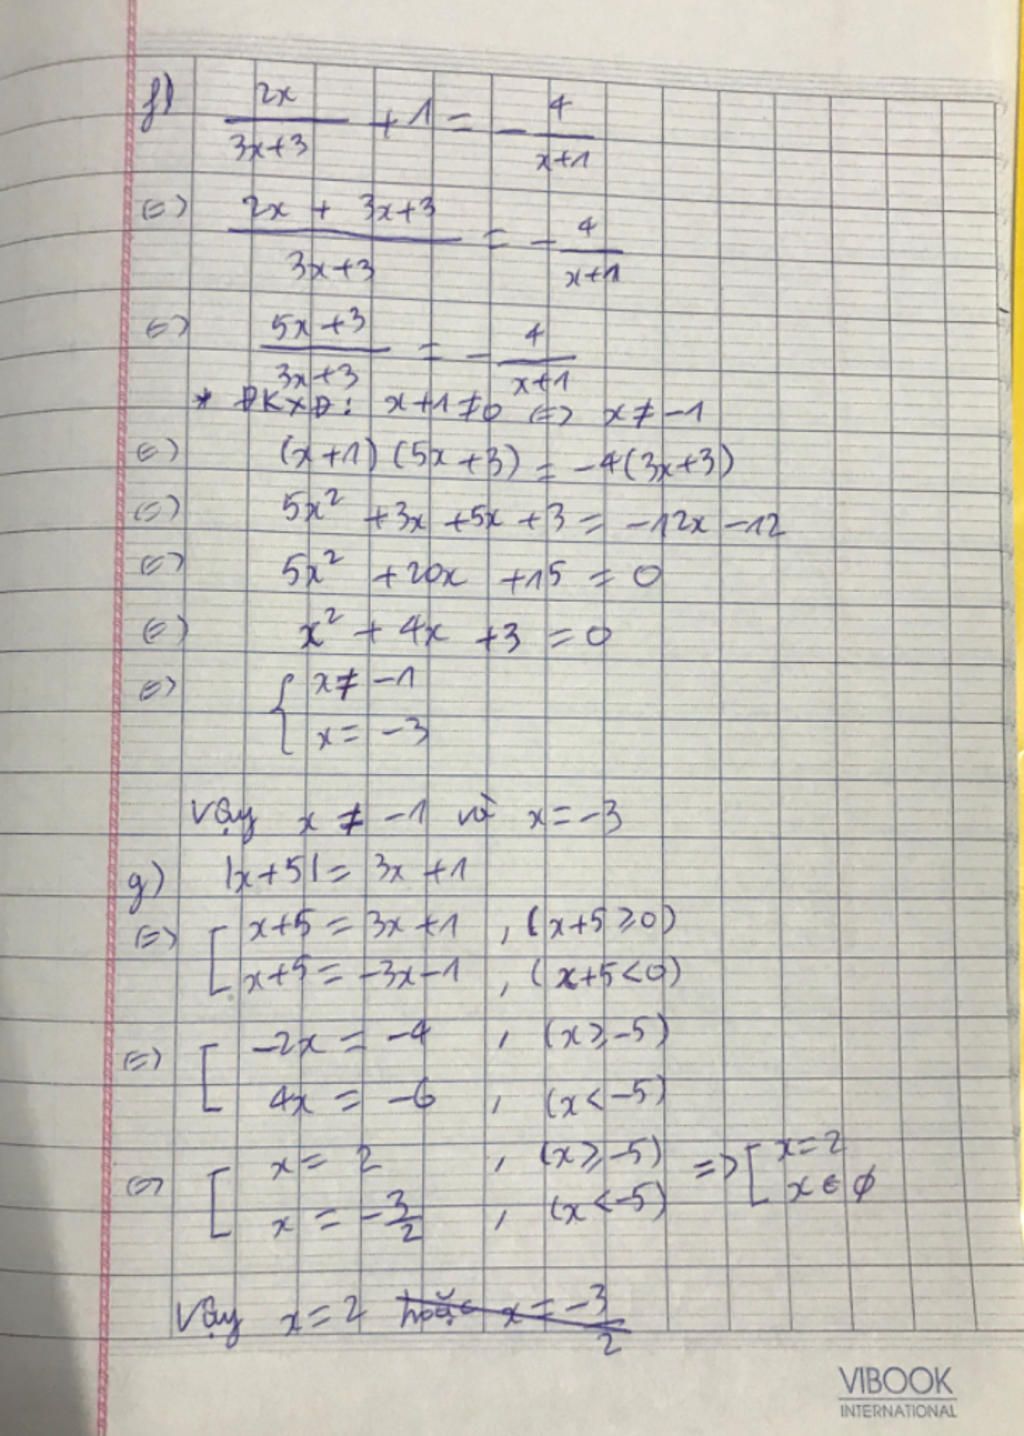 f) 2x/(3x+3) + 1 = - 4/(x+1)
(=) (2x + 3x+3)/(3x+3) = - 4/(x+1)
(=) (5x+3)/(3x+3) = - 4/(x+1)
* ĐKXĐ: x+1≠0 (=) x ≠ -1
(=) (x+1) (5x+3) = -4(3x+3)
(=) 5x² +3x +5x +3 = -12x -12
(=) 5x² +20x +15 = 0
(=) x² + 4x +3 = 0
(=) { x ≠ -1
x = -3
Vậy x ≠ -1 và x = -3
g) |x+5| = 3x+1
(=) [ x+5 = 3x+1 , (x+5 ≥ 0)
x+5 = -3x-1 , (x+5 < 0)
(=) [ -2x = -4 , (x ≥ -5)
4x = -6 , (x < -5)
(=) [ x = 2 , (x ≥ -5) => [ x = 2
x = -3/2 , (x < -5) x ∈ ∅
Vậy x = 2 hoặc x = -3/2
VIBOOK
INTERNATIONAL